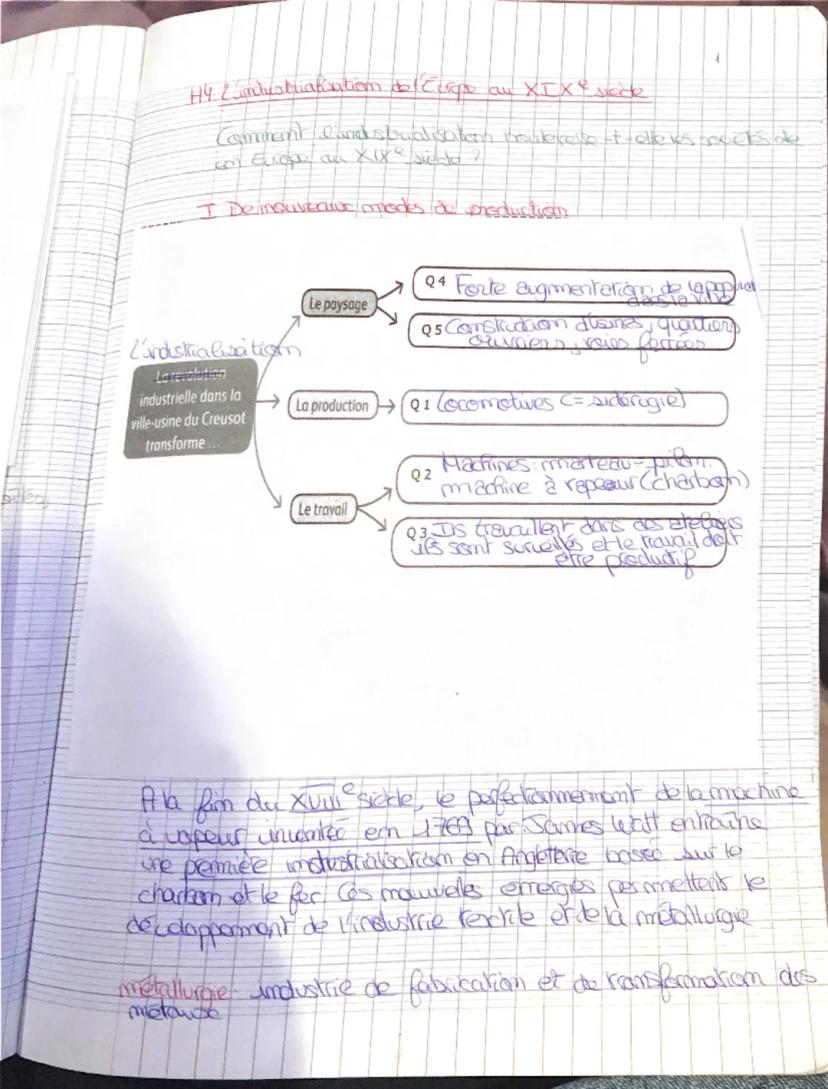 1
H4 L'industrialisation de l'Europe au XIXe siècle
Comment l'industrialisation bouleverse-t-elle les sociétés de
en Europe au XIXe siècle ?
I De nouveaux modes de production
Le paysage
Q4 Forte augmentation de la
dans la ville
Q5 Construction d'usines, quartiers
ouvriers, voies ferrées
L'industrialisation
La révolution
industrielle dans la
ville-usine du Creusot
transforme ...
La production
Q1 Locomotives (= sidérugie)
Q2 Machines: marteau-pilon.
machine à vapeur (charbon)
Le travail
Q3 Ils travaillent dans des ateliers
ils sont surveillés et le travail doit
être productif
A la fin du XVIIIe siècle, le perfectionnement de la machine
à vapeur inventée en 1769 par James Watt entraîne
une première industrialisation en Angleterre basée sur le
charbon et le fer. Ces nouvelles énergies permettent le
développement de l'industrie textile et de la métallurgie
métallurgie: industrie de fabrication et de transformation des
métaux